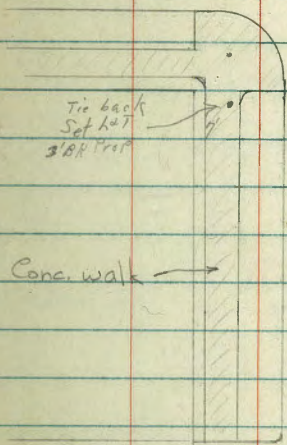 Tie back
Set h&T
3'BR Prop
7'
Conc. walk